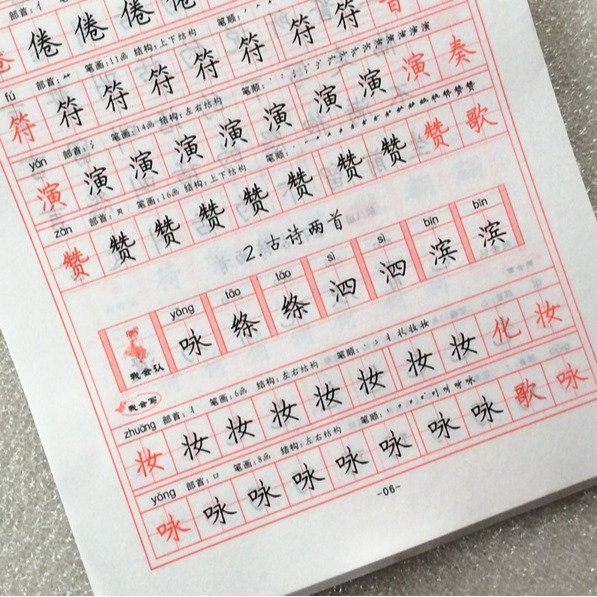 倦 倦 倦 倦
fú 部首:⺮ 笔画:11画 结构:上下结构 笔顺:
符 符 符 符 符 符 符 符
yǎn 部首:氵 笔画:14画 结构:左右结构 笔顺:
演 演 演 演 演 演 演 演 演 奏
zàn 部首:贝 笔画:16画 结构:上下结构 笔顺:
赞 赞 赞 赞 赞 赞 赞 赞 赞 歌
2.古诗两首
yǒng tāo tāo sì sì bīn bīn
咏 绦 绦 泗 泗 滨 滨
我会认
我会写
zhuāng 部首:丬 笔画:6画 结构:左右结构 笔顺:
妆 妆 妆 妆 妆 妆 妆 妆 化 妆
yǒng 部首:口 笔画:8画 结构:左右结构 笔顺:
咏 咏 咏 咏 咏 咏 咏 咏 歌 咏
-06-